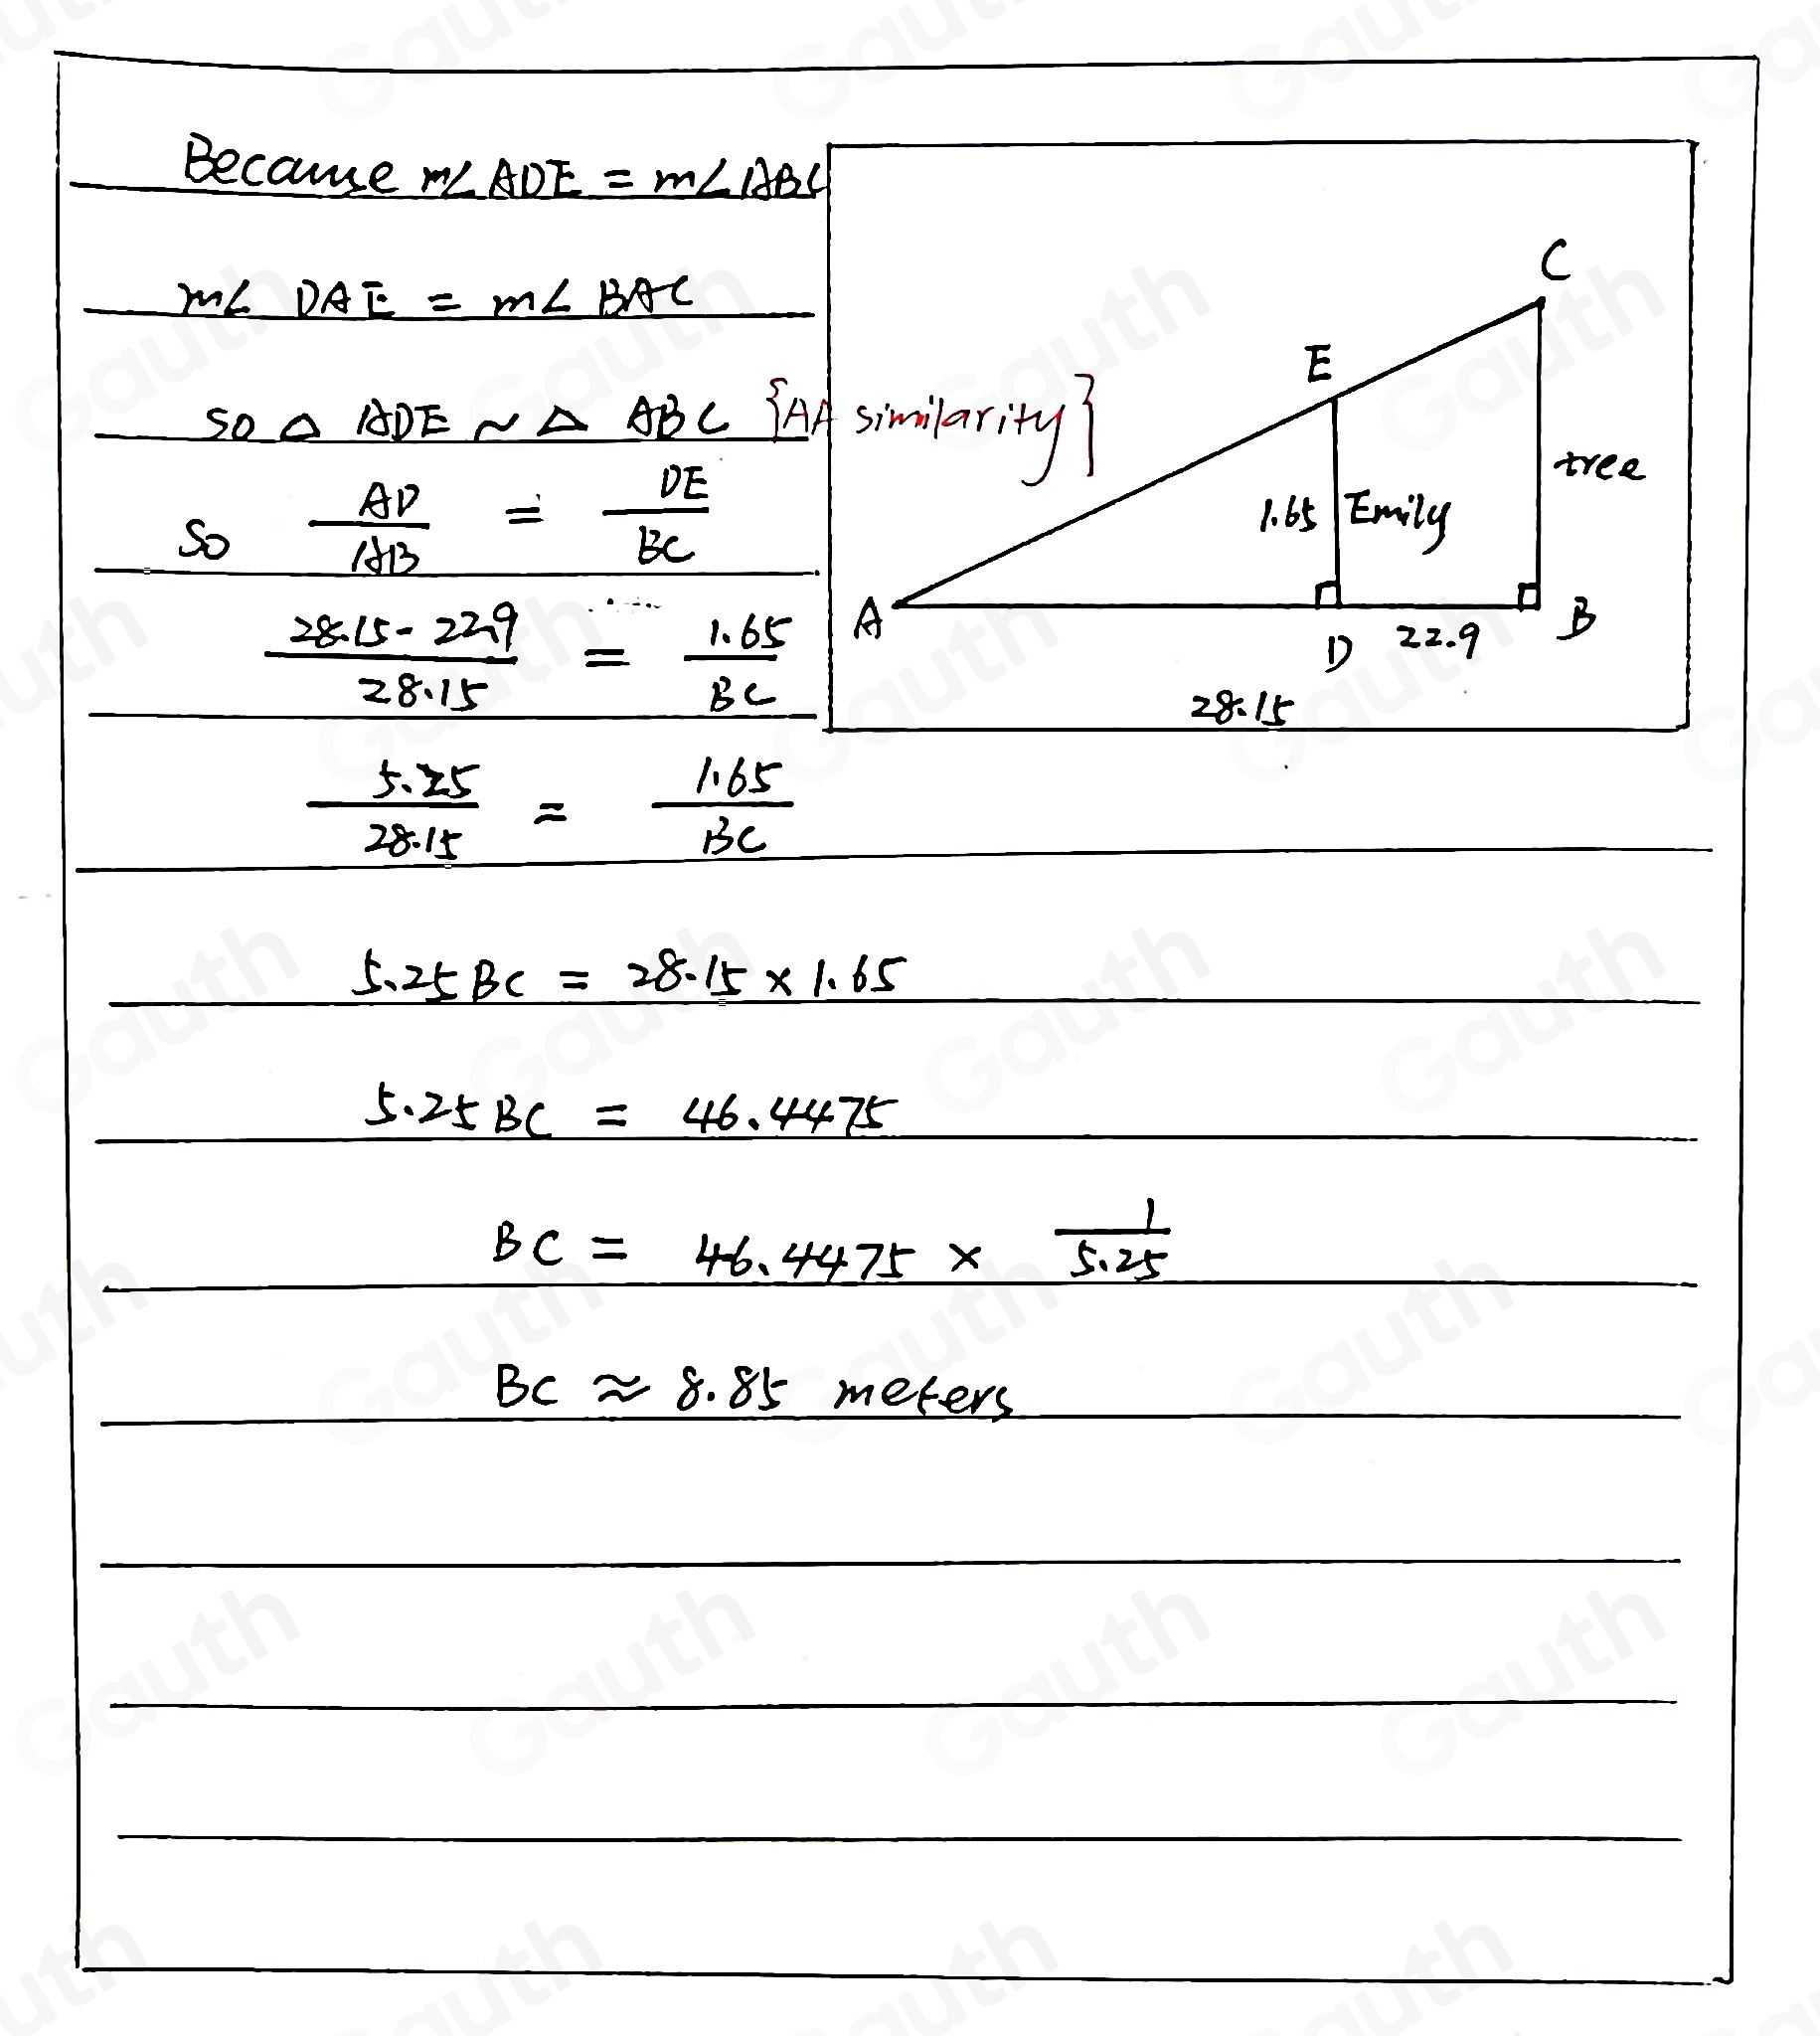 Because m∠ADE = m∠ABC
m∠ DAE = m∠ BAC
so △ ADE ~ △ ABC {AA similarity}
So AD/AB = DE/BC
28.15 - 22.9/28.15 = 1.65/BC
5.25/28.15 = 1.65/BC
5.25BC = 28.15 × 1.65
5.25BC = 46.4475
BC = 46.4475 × 1/5.25
BC ≈ 8.85 meters
C
E
tree
1.65 Emily
A
D 22.9 B
28.15
Gauth